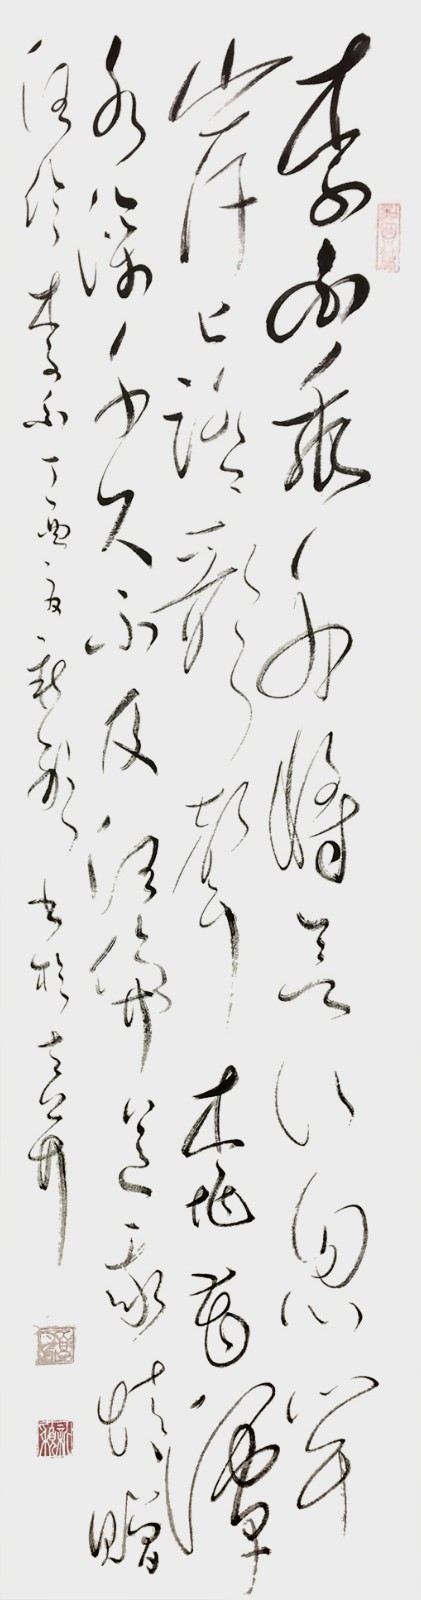 李白乘舟將欲行忽聞
岸上踏歌聲桃花潭
水深千尺不及汪倫送我情贈
汪倫李白丁酉夏書於